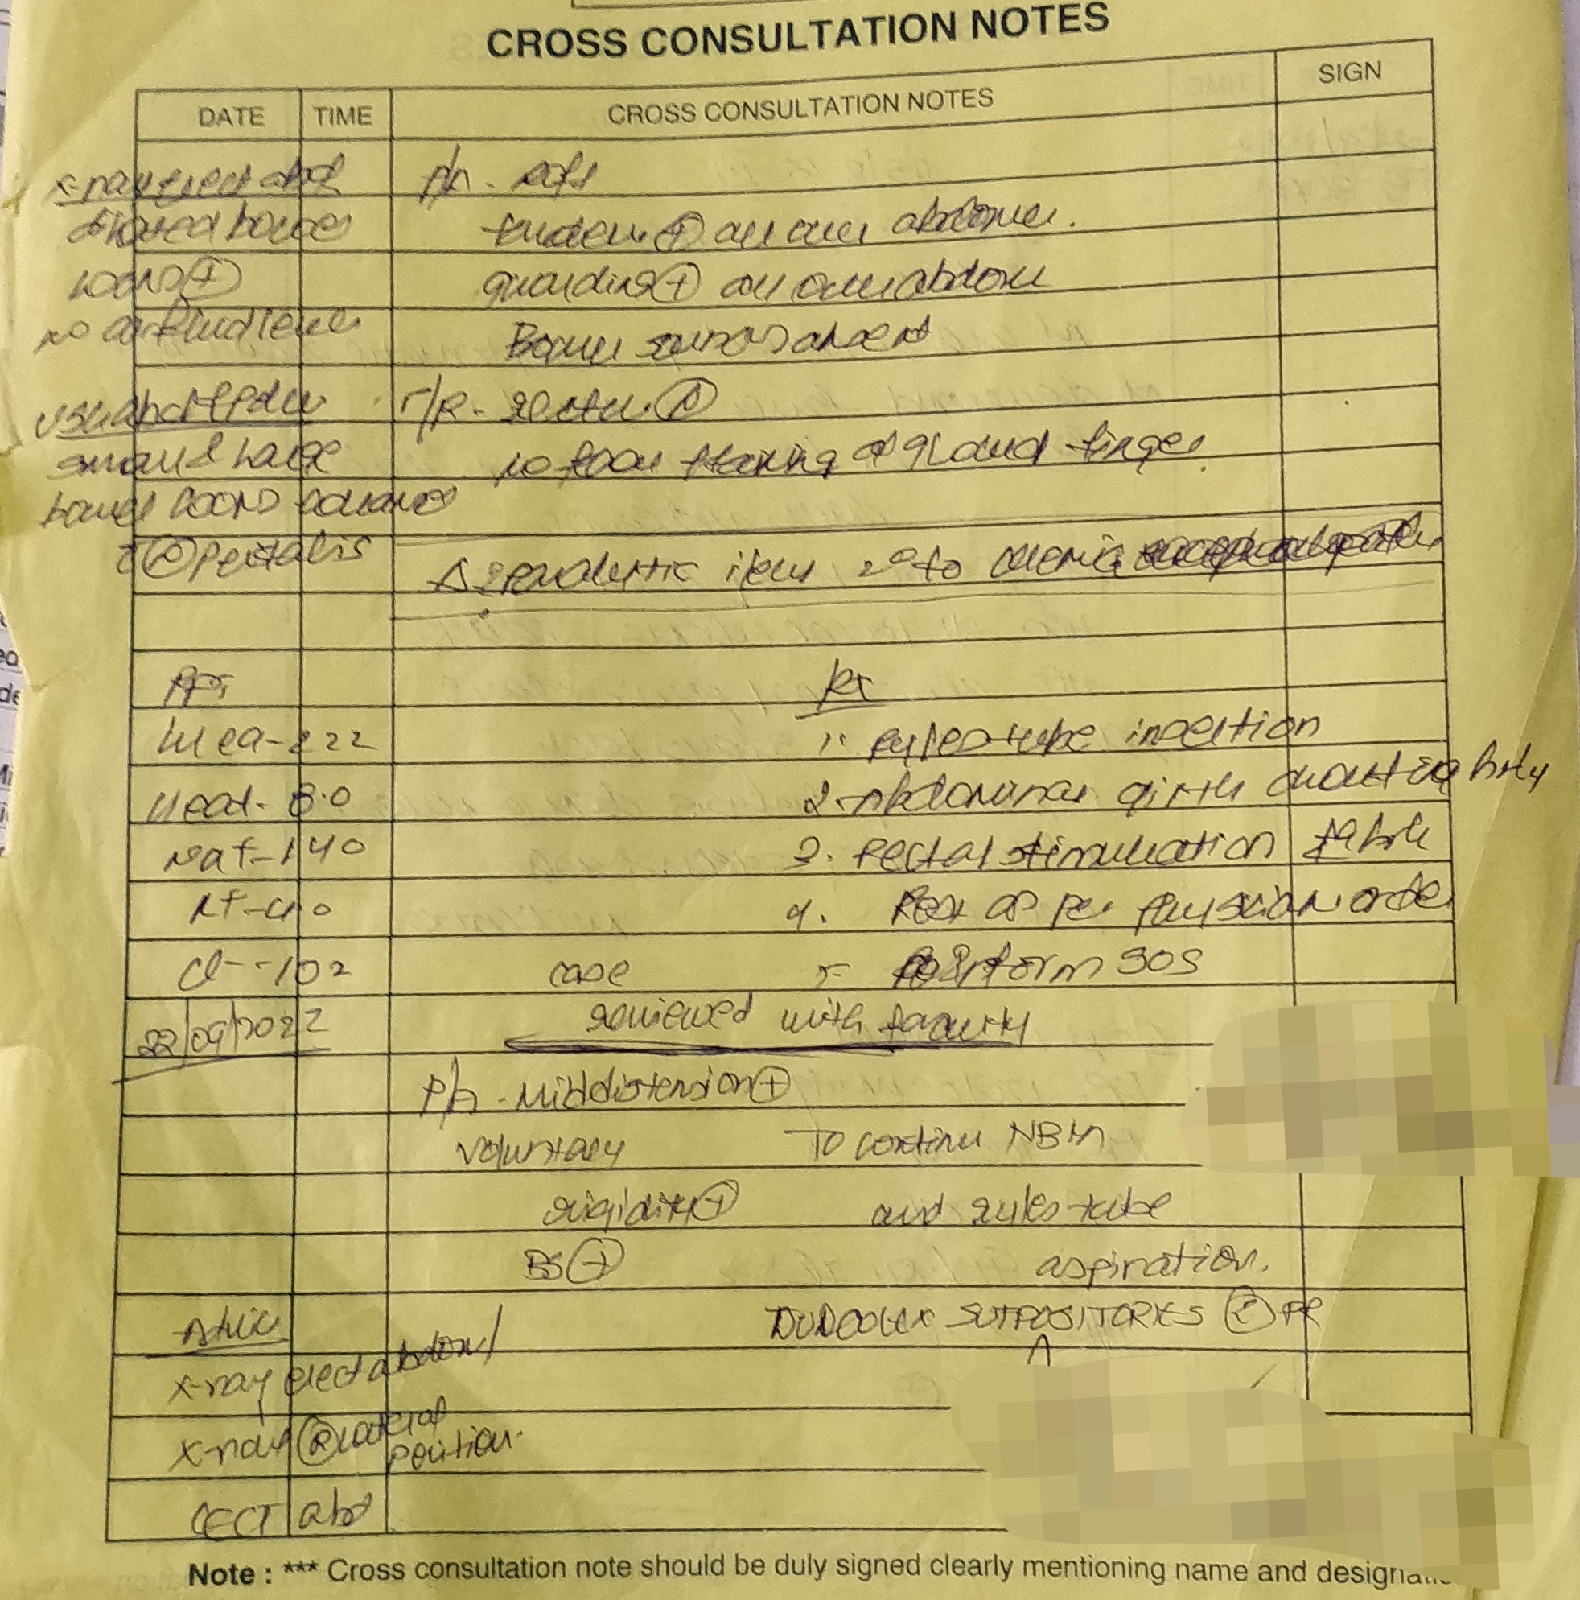 CROSS CONSULTATION NOTES
DATE TIME CROSS CONSULTATION NOTES SIGN
x-ray erect abd P/A - soft
dilated bowel tenderness ⊕ all over abdomen.
loops ⊕ guarding ⊕ all over abdomen
no air fluid level Bowel sounds absent
USG abd & pelvis P/R -
small & large no staining of gloved finger
bowel loops
c peristalsis Δ ? paralytic ileus 2° to uremic
RFT Rx
Urea - 222 1. ryles tube insertion
creat - 8.0 2. Abdominal girth charting hrly
Na+ - 140 3. Rectal stimulation hrly
K+ - 4.0 4. Rest as per physician order
Cl- - 102 case 5. inform SOS
22/09/2022 reviewed with faculty
P/A - Mild distension ⊕
voluntary To continue NBM
rigidity ⊕ and ryles tube
BS ⊕ aspiration.
Advice DUDCOLEX SUPPOSITORIES PR
x-ray erect abdomen
x-ray Ⓡ lateral position.
CECT abd
Note : *** Cross consultation note should be duly signed clearly mentioning name and